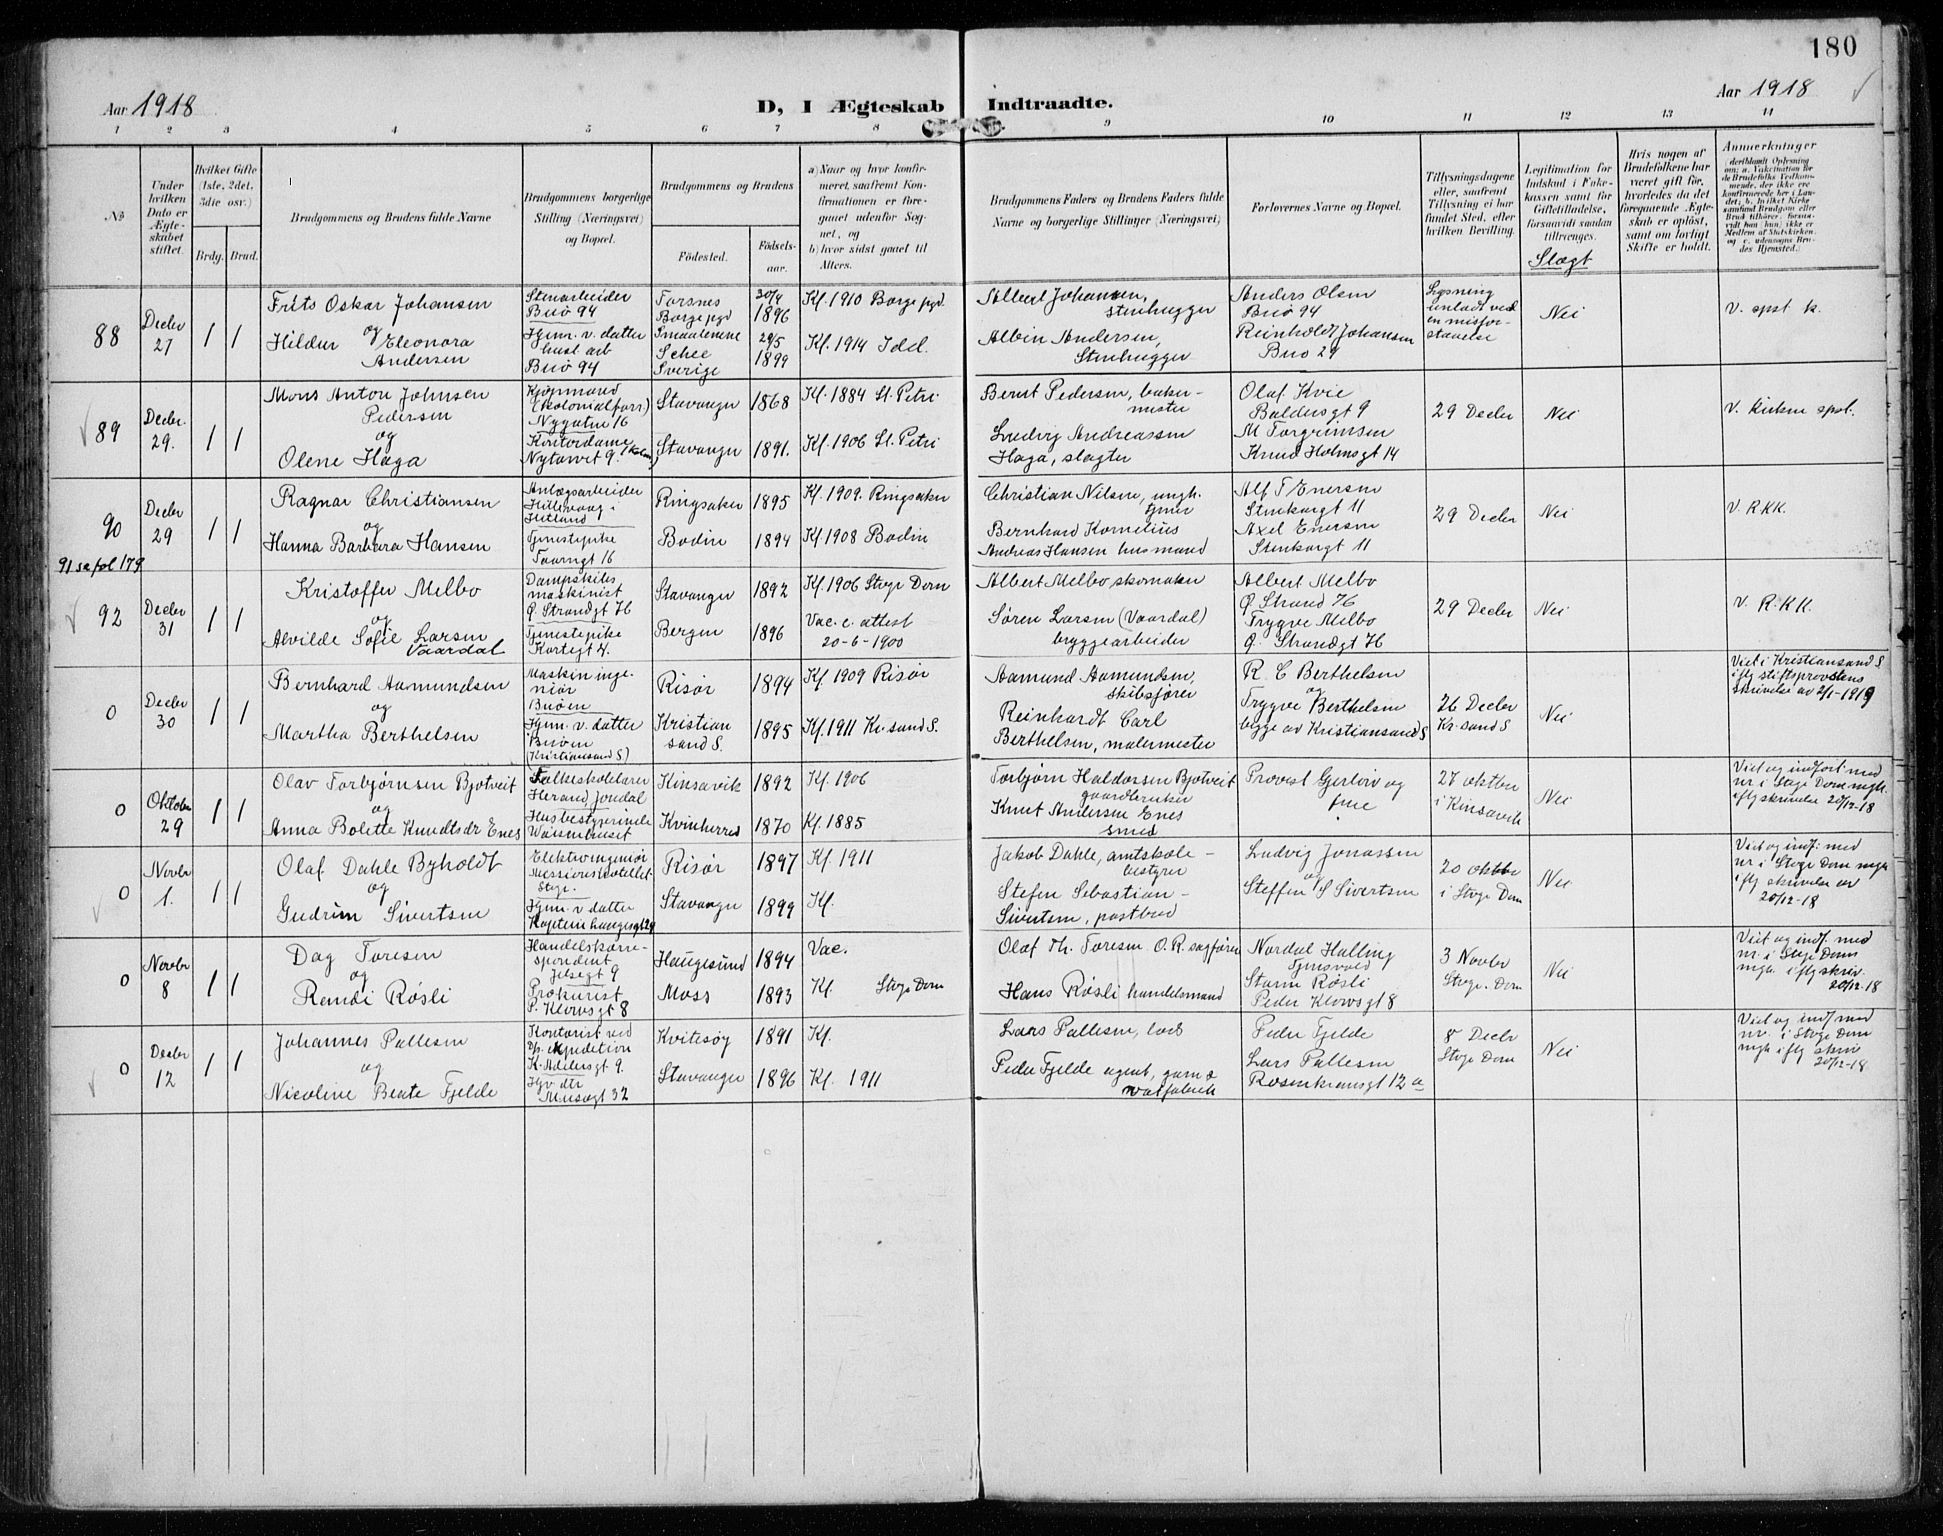 180
Aar 1918
D, I Ægteskab Indtraadte.
Aar 1918
1 2 3 4 5 6 7 8 9 10 11 12 13 14
№
Under hvilken Dato er Ægteskabet stiftet.
Hvilket Gifte (1ste, 2det, 3die osv.)
Brdg. Brud.
Brudgommens og Brudens fulde Navne
Brudgommens borgerlige Stilling (Næringsvei) og Bopæl.
Brudgommens og Brudens
Födested.
Födselsaar.
a) Naar og hvor konfirmeret, saafremt Konfirmationen er foregaaet udenfor Sognet, og
b) hvor sidst gaaet til Alters.
Brudgommens Faders og Brudens Faders fulde Navne og borgerlige Stillinger (Næringsvei)
Forlovernes Navne og Bopæl.
Tillysningsdagene eller, saafremt Tillysning ei har fundet Sted, efter hvilken Bevilling.
Legitimation for Indskud i Enkekassen samt for Giftetilladelse, forsaavidt saadan tiltrænges.
Slægt
Hvis nogen af Brudefolkene har været gift før, hvorledes da det foregaaende Ægteskab er opløst, samt om lovligt Skifte er holdt.
Anmerkninger
(deriblandt Oplysning om: a. Vakcination for de Brudefolks Vedkommende, der ikke ere konfirmerede her i Landet; b. hvilket Kirkesamfund Brudgom eller Brud tilhører, forsaavidt han (hun) ikke er Medlem af Statskirken, og c. udensogns Brudes Hjemsted.)
88
Decbr 27
1 1
Frits Oskar Johansen
og
Hildur Eleonora
Andersen
Stenarbeider
Buö 94
Hjem. v. datter
hust arb
Buö 94
Torsnes
Borge pgd
Smaalenene
Schee
Sverige
30/4
1896
29/5
1899
Kf. 1910 Borge pgd.
Kf. 1914 Idd.
Albert Johansen,
stenhugger
Albin Andersen,
Stenhugger
Anders Olsen
Buö 94
Reinholdt Johansen
Buö 29
Lysning
unladt ved
en misfor-
staaelse
Nei
V. spst k.
89
Decbr. 29.
1 1
Mons Anton Johnsen
Pedersen
og
Olene Haga
Kjøpmand
(kolonialforr.)
Nygaten 16
Kontordame
Nytorvet 9.
Stavanger 1868
Stavanger 1891.
Kf. 1884 St. Petri
Kf. 1906 St. Petri
Bernt Pedersen, baker-
mester
Ludvig Andreassen
Haga, slagter
Olaf Kvie
Baldersgt 9
M Torgrimsen
Knud Holmsgt 14
29 Decbr
Nei
V. kirken spst.
90
Decbr 29
1 1
Ragnar Christiansen
og
Hanna Barbara Hansen
Anlægsarbeider
Hillevaag -
Hetland
Tjenestepike
Taarngt 16
Ringsaker 1895
Bodin 1894
Kf. 1909. Ringsaker
Kf. 1908 Bodin
Christian Nilsen, ungk.
tjener
Bernhard Kornelius
Andreas Hansen husmand
Alf T Enersen
Stenkargt 11
Axel Enersen
Stenkargt 11
29 Decbr
Nei
V. RKK.
91 se fol 179
92
Decbr 31
1 1
Kristoffer Melbo
og
Alvilde Sofie Larsen
Vaardal
Dampskibs
maskinist
Ø. Strandgt 76
Tjenestepike
Kortegt 4.
Stavanger 1892
Bergen 1896
Kf. 1906 Stvgr Dom
Vac. c. attest
20-6-1900
Albert Melbo skomaker
Søren Larsen (Vaardal)
bryggearbeider
Albert Melbo
Ø Strand 76
Trygve Melbo
Ø. Strandgt 76
29 Decbr
Nei
V. R.K.K.
0
Decbr 30
1 1
Bernhard Aamundsen
og
Martha Berthelsen
Maskin inge
niör
Buöen
Hjem. v. datter
Buöen
Kristiansand S)
Risör 1894
Kristian
sand S. 1895
Kf 1909 Risör
Kf. 1911 Kr. sand S.
Aamund Aamundsen,
skibsfører
Reinhardt Carl
Berthelsen, malermester
R. C Berthelsen
og
Trygve Berthelsen
begge av Kristiansand S
26 Decbr
Kr. sand S
Nei
Viet i Kristiansand S
iflg stiftsprovstens
skrivelse av 2/1-1919
0
Oktober 29
1 1
Olav Torbjørnsen Bjotveit
og
Anna Bolette Knudtsdr Enes
Folkeskolelærer
Herand, Jondal
Husbestyrerinde
Waisenhuset
Kinsavik 1892
Kvinherred 1870
Kf. 1906
Kf. 1885
Torbjørn Haldorsen Bjotveit
gaardbruker
Knut Andersen Enes
smed
Provst Gjerløv og
frue
27 oktber
i Kinsavik
Nei
Viet og indført med
nr i Stvgr Dom mgh.
iflg skrivelse 20/12-18
0
Novbr 1.
1 1
Olaf Dahle Byholdt
og
Gudrun Sivertsen
Elektroingeniör
Missionshotellet
Stvgr.
Hjem. v datter
Kaptein Langesgt 29
Risør 1897
Stavanger 1899
Kf. 1911
Kf.
Jakob Dahle, amtskole-
bestyrer
Stefen Sebastian-
Sivertsen, postbud
Ludvig Jonassen
og
Steffen S Sivertsen
20 oktbr
i Stvgr Dom
Nei
Viet og indf. med
nr i Stvgr Dom mgh
iflg skrivelse av
20/12-18
0
Novbr 8
1 1
Dag Toresen
og
Randi Røsli
Handelskorre-
spondent
Jelsegt 9
Prokurist
P. Klowsgt 8
Haugesund 1894
Moss 1893
Vac.
Kf Stvgr Dom
Olaf Th. Toresen O.R. sagfører
Hans Røsli handelsmand
Nordal Halling
Tjensvold
Sturm Røsli
Peder Klowsgt 8
3 Novbr
Stvgr. Dom
Nei
Viet og indf. med
nr. i Stvgr Doms
mgh. iflg skriv.
20/12-18
0
Decbr 12
1 1
Johannes Pallesen
og
Nicoline Beate Fjelde
Kontorist ved
D/s. expedition
K. Meiersgt 9.
Hjv. dtr
Musegt 32
Kvitesöy 1891
Stavanger 1896
Kf.
Kf. 1911
Lars Pallesen, lods
Peder Fjelde agent, garn &
vatfabrik
Peder Fjelde
Lars Pallesen
Rosenkransgt 12a
8 Decbr
Stvgr Dom
Nei
Viet og indf med
nr. i Stvgr Dom
mgh iflg skriv
20/12-18